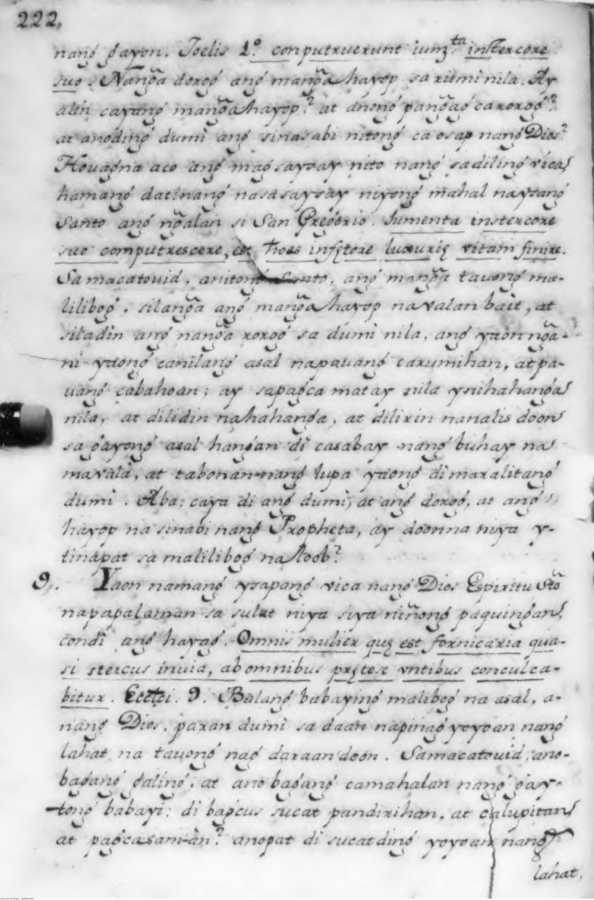 222,
nang̃ g̃ayon. Joelis 1.º computruerunt iumᵗᵃ in stercore
suo. Nang̃a dorog̃ ang̃ mang̃a hayop, sa rumi nila. Ay
alin cayang̃ mang̃a hayop? at anong̃ pang̃ag̃ carorog̃?
at anoding̃ dumi ang̃ sinasabi nitong̃ ca osap nang̃ Dios?
Houag na aco ang̃ mag̃saysay nito nang̃ sadiling̃ vica,
hamang̃ datinang̃ nasasaysay niyong̃ mahal naysang̃
Santo ang̃ ng̃alan si San Greg̃orio. Iumenta in stercore
suo computrescere, est hoēs in fętore luxurię vitam finire.
Sa macatouid, anitong̃ Santo, ang̃ mang̃a tauong̃ ma-
lilibog̃, silang̃a ang̃ mang̃a hayop na valan bait, at
siladin ang̃ nang̃a rorog̃ sa dumi nila, ang̃ yaon ng̃a-
ni ytong̃ canilang̃ asal na pauang̃ carumihan, at pa-
uang̃ cabahoan; ay sapag̃ca matay sila ynihahang̃a
nila, at dilidin nahahang̃a, at dilirin nanalis doon
sa g̃ayong̃ asal hang̃an di casabay nang̃ buhay na
mavala, at tabonan nang̃ lupa ytong̃ di maralitang̃
dumi. Aba; caya di ang̃ dumi, at ang̃ dorog̃, at ang̃
hayop na sinabi nang̃ Propheta, ay doon na niya y-
tinapat sa malilibog̃ na loob?
9. Yaon namang̃ ysapang̃ vica nang̃ Dios Espiritu Sᵗᵒ
na papalaman sa sulat niya siya ninyong̃ paquing̃an,
condi ang̃ hayag̃. Omnis mulier quę est fornicaria qua-
si stercus in uia, ab omnibus prętereuntibus conculca-
bitur. Eccłi. 9. Balang̃ babaying̃ malibog̃ na asal, a-
nang̃ Dios, paran dumi sa daan na pinag̃yoyoan nang̃
lahat na tauong̃ nag̃daraan doon. Sa macatouid; ano-
bag̃ang̃ g̃aling̃, at ano bag̃ang̃ camahalan nang̃ g̃ay-
tong̃ babayi; di bag̃cus sucat pandirihan, at calupitan,
at pag̃casam-an? anopat di sucat ding̃ yoyoan nang̃
lahat,